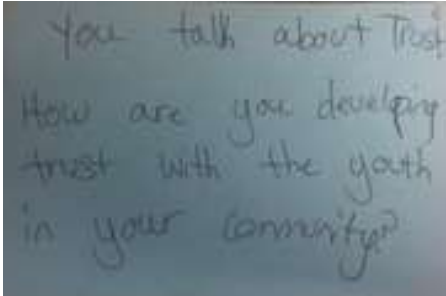 You talk about Trust
How are you developing
trust with the youth
in your community?